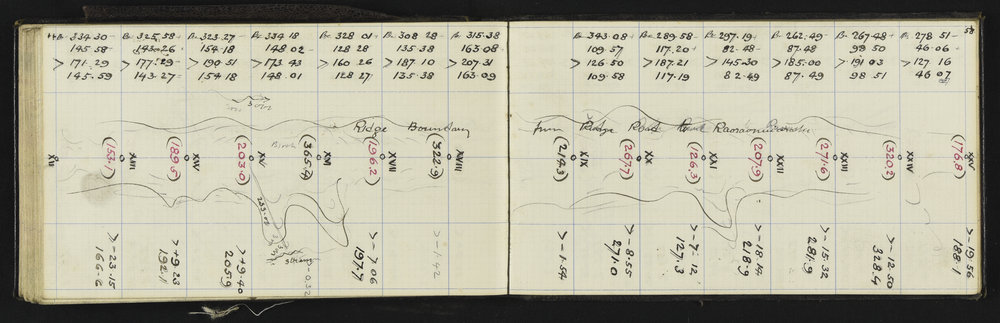 334.30 - 325.58 - 323.27 - 334 18 328 01 + 308 28 - 315.38
145.58 - 143.26 + 154.18 148 02 - 128 28 135.38 163 08 -
> 171.29 > 177.29 - > 190 51 > 173 43 > 160 26 > 187.10 > 207.31
145.59 143.27 - 154 18 148.01 128 27 135.38 163.09
Ridge Boundary
Birch
XII (153.1) XIII (189.5) XIV (203.0) XV (365.4) XVI (196.2) XVII (322.9) XVIII
233.05
Strong
> - 23.15
166.6
> + 9.23
192.1
> + 9.40
205.9
- 0.32
> - 7.06
197.7
> - 1.42
58
343.08 + 289.58 - 297.19 + 262.49 - 267.48 + 278 51 -
109 57 117.20 + 82.48 - 87.48 98 50 46.06 +
> 126 50 > 187.21 > 145.30 > 185.00 > 191 03 > 127 16
109.58 117.19 82.49 87.49 98 51 46 07
from Ridge Road
(214.3) XIX (267.7) XX (126.3) XXI (207.9) XXII (271.6) XXIII (320.2) XXIV (176.8) XXV
> - 1.54
> - 8.55
271.0
> - 7.12
127.3
> - 18.14
218.9
> - 15.32
281.9
> - 12.50
328.4
> - 19.56
188.1